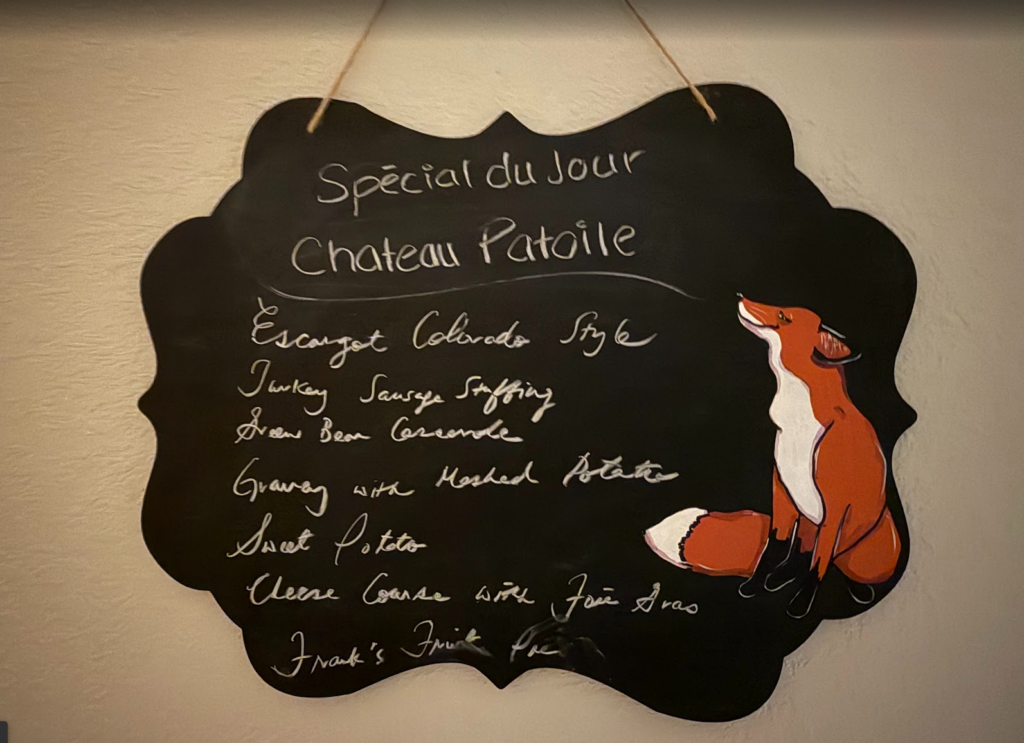 Spécial du Jour
Chateau Patoile
Escargot Colorado Style
Turkey Sausage Stuffing
Green Bean Casserole
Gravay with Mashed Potato
Sweet Potato
Cheese Course with Foie Gras
Frank's Fruit